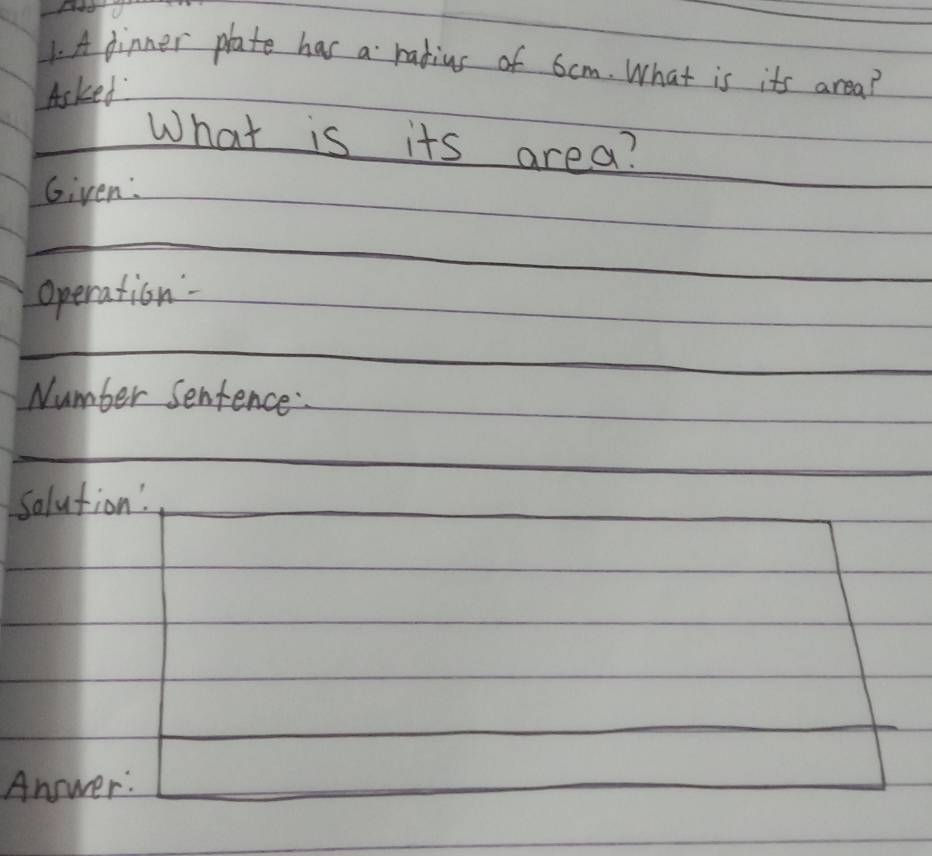 1. A dinner plate has a radius of 6cm. What is its area?
Asked:
What is its area?
Given:
Operation:
Number Sentence:
Solution:
Answer: